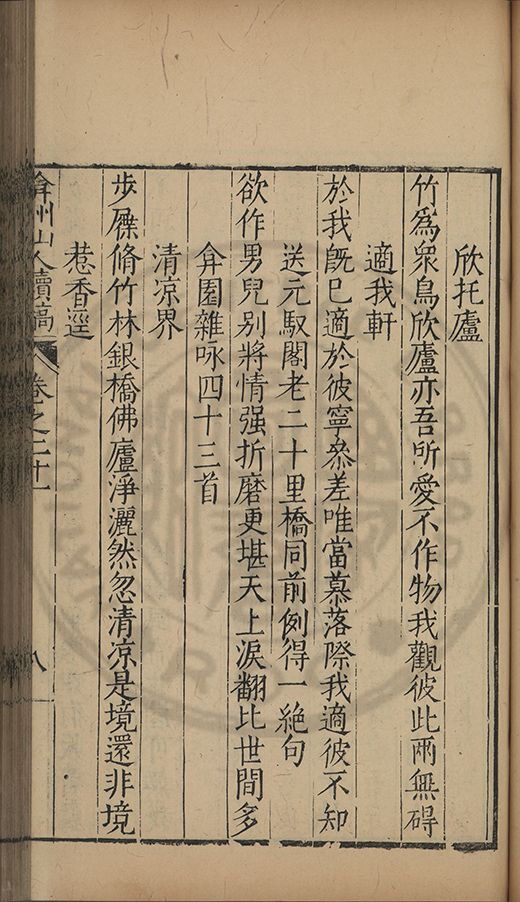 欣托廬
竹爲衆鳥欣廬亦吾所愛不作物我觀彼此兩無碍
適我軒
於我旣巳適於彼寧叅差唯當慕落際我適彼不知
送元馭閣老二十里橋同前例得一絶句
欲作男兒别將情强折磨更堪天上淚翻比世間多
弇園雜咏四十三首
清凉界
步屧脩竹林銀橋佛廬淨灑然忽清凉是境還非境
惹香逕
弇州山人續稿 卷之二十一 八